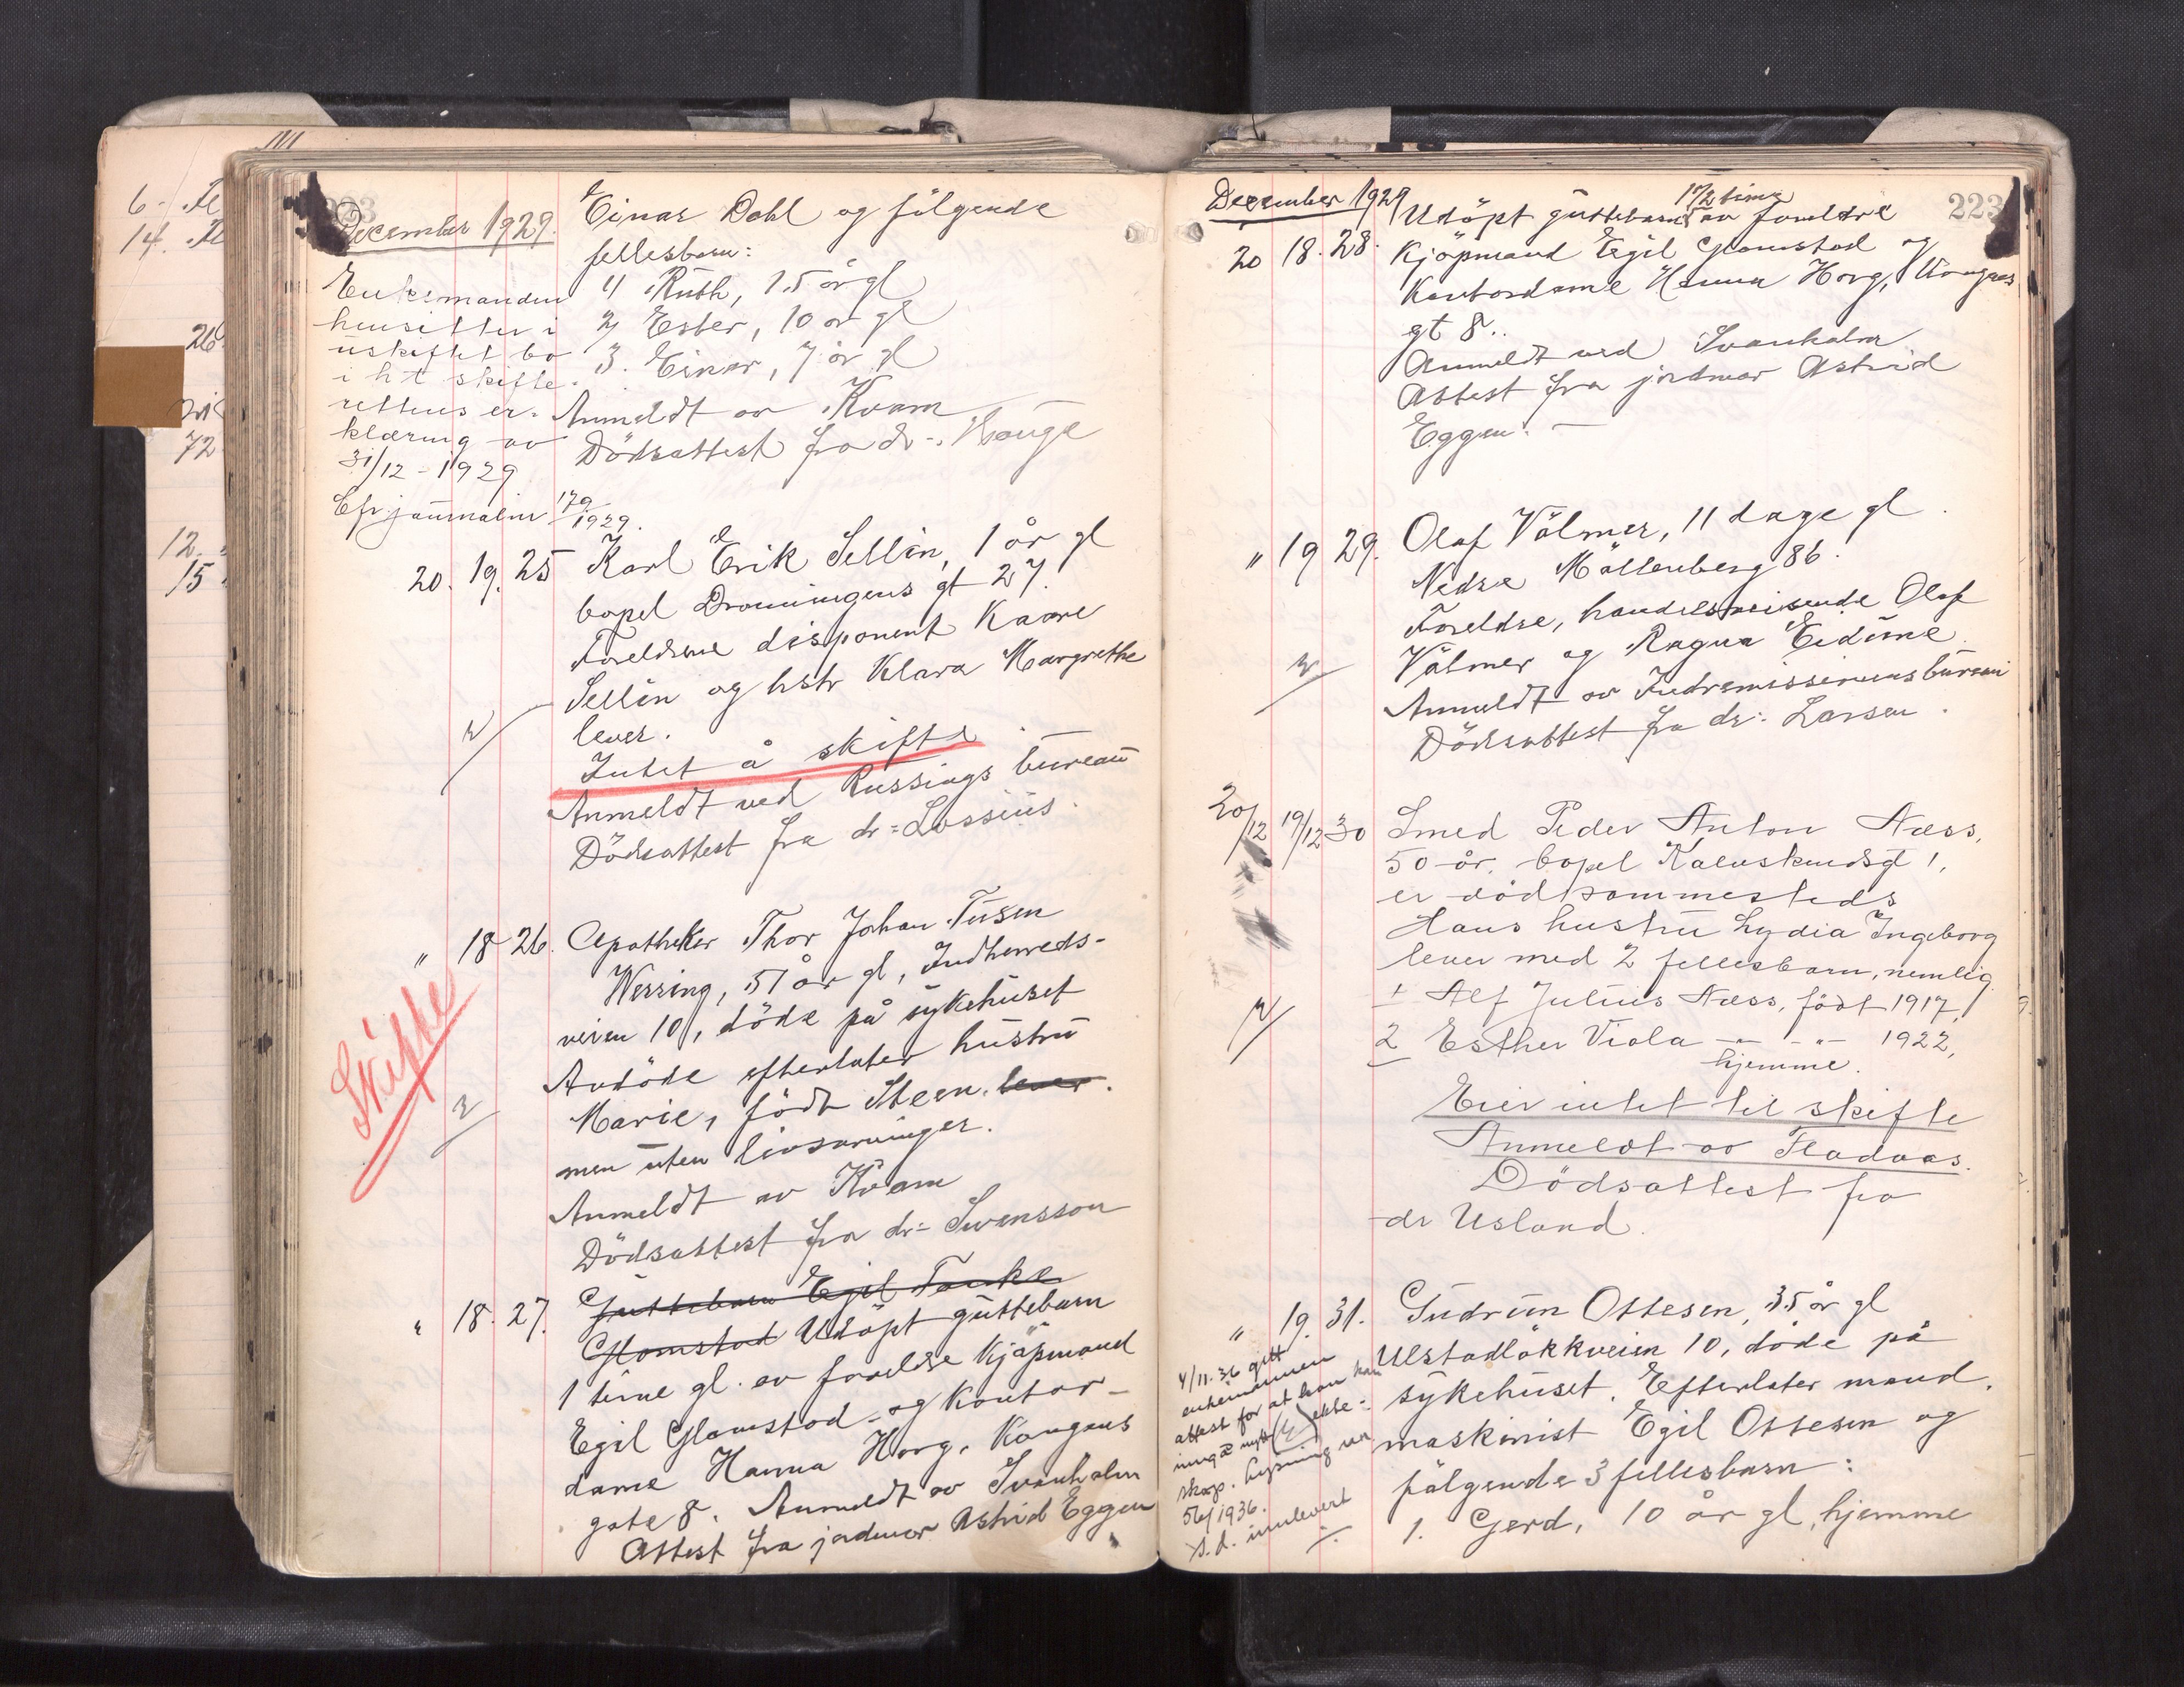 6
14.
26
72
12.
15
December 1929.
Einar Dahl og følgende
fellesbarn:
1) Ruth, 15 år gl
2) Ester, 10 år gl
3. Einar, 7 år gl
Anmeldt av Kvam
Dödsattest fra dr:
Enkemanden
hensitter i
uskiftet bo
i h t skifte-
rettens er-
klæring av
31/12 - 1929
Efr. journalnr 179/1929.
20. 19. 25 Karl Erik Sellin, 1 år gl
bopel Dronningens gt 27.
Foreldrene disponent Kaare
Sellin og hstr Klara Margrethe
lever.
Intet å skifte
Anmeldt ved Russings bureau
Dödsattest fra dr: Lossius.
" 18 26. Apotheker Thor Johan Tusen
Wessing, 51 år gl, Indherreds-
veien 10, döde på sykehuset
Avdöde efterlater hustru
Marie, födt Steen. lever.
men uten livsarvinger.
Anmeldt av Kvam
Dödsattest fra dr: Svensson
Skifte
" 18. 27. Guttebarn Egil Tanke
Glomstad Udöpt guttebarn
1 time gl. av foreldre Kjöpmand
Egil Glamstad og Kontor-
dame Hanna Horg, Kongens
gate 8. Anmeldt av Svanholm
Attest fra jordmor Astrid Eggen
223
December 1929
1 1/2 time
20 18. 28. Udöpt guttebarn av foreldre
Kjöpmand Egil Glamstad og
Kontordame Hanna Horg, Kongens
gt 8..
Anmeldt ved Svanholm
Attest fra jordmor Astrid
Eggen. -
" 19 29. Olaf Völmer, 11 dage gl.
Nedre Möllenberg 86.
Foreldre, handelsreisende Olaf
Völmer og Ragna Eidime.
Anmeldt av Indremissionens bureau
Dödsattest fra dr: Larsen.
20/12 19/12 30 Smed Peder Anton Næss,
50 år. bopel Kalvskindsgt 1,
er död sammesteds
Hans hustru Lydia Ingeborg
lever med 2 fellesbarn, nemlig
1 Alf Julius Næss, födt 1917,
2 Esther Viola - " - " - 1922,
hjemme.
Eier intet til skifte
Anmeldt av Fladaas.
Dödsattest fra
dr Usland.
" 19. 31. Gudrun Ottesen, 35 år gl
Ulstadlökkveien 10, döde på
sykehuset. Efterlater mand,
maskinist Egil Ottesen og
fölgende 3 fellesbarn:
1. Gerd, 10 år gl, hjemme
4/11.36 gitt
enkemannen
attest for at han kan
inngå nytt ekte-
skap. Lysning var
1936.
s.d. innlevert